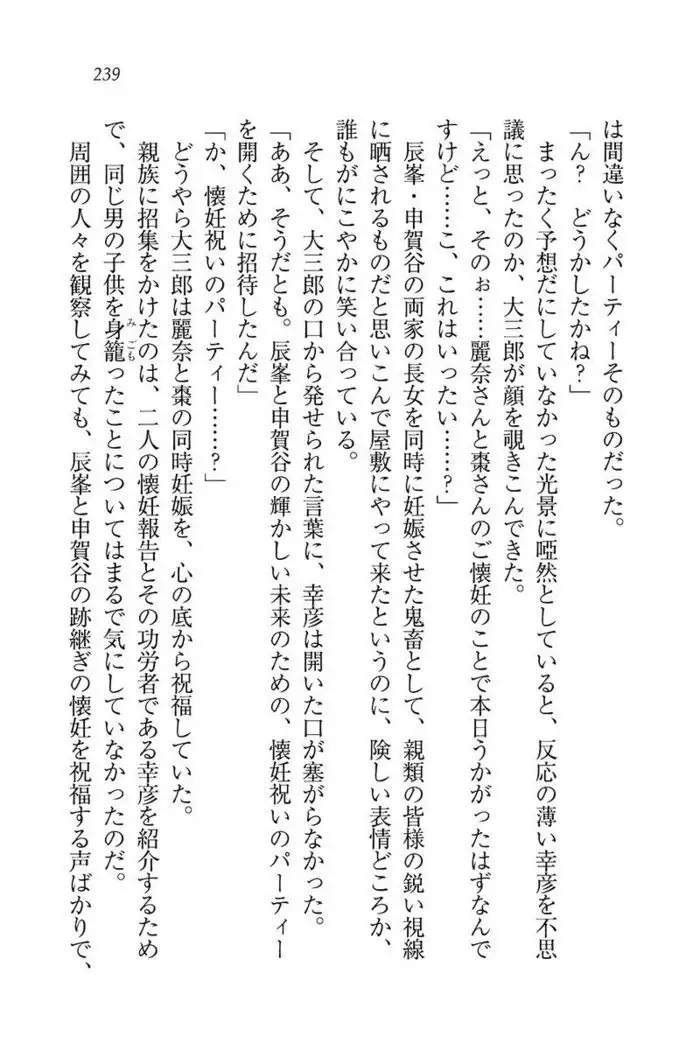 239
は間違いなくパーティーそのものだった。
「ん？　どうかしたかね？」
まったく予想だにしていなかった光景に啞然としていると、反応の薄い幸彦を不思
議に思ったのか、大三郎が顔を覗きこんできた。
「えっと、そのぉ……麗奈さんと棗さんのご懐妊のことで本日うかがったはずなんで
すけど……こ、これはいったい……？」
辰峯・申賀谷の両家の長女を同時に妊娠させた鬼畜として、親類の皆様の鋭い視線
に晒されるものだと思いこんで屋敷にやって来たというのに、険しい表情どころか、
誰もがにこやかに笑い合っている。
そして、大三郎の口から発せられた言葉に、幸彦は開いた口が塞がらなかった。
「ああ、そうだとも。辰峯と申賀谷の輝かしい未来のための、懐妊祝いのパーティー
を開くために招待したんだ」
「か、懐妊祝いのパーティー……？」
どうやら大三郎は麗奈と棗の同時妊娠を、心の底から祝福していた。
親族に招集をかけたのは、二人の懐妊報告とその功労者である幸彦を紹介するため
で、同じ男の子供を身籠ったことについてはまるで気にしていなかったのだ。
みごも
周囲の人々を観察してみても、辰峯と申賀谷の跡継ぎの懐妊を祝福する声ばかりで、